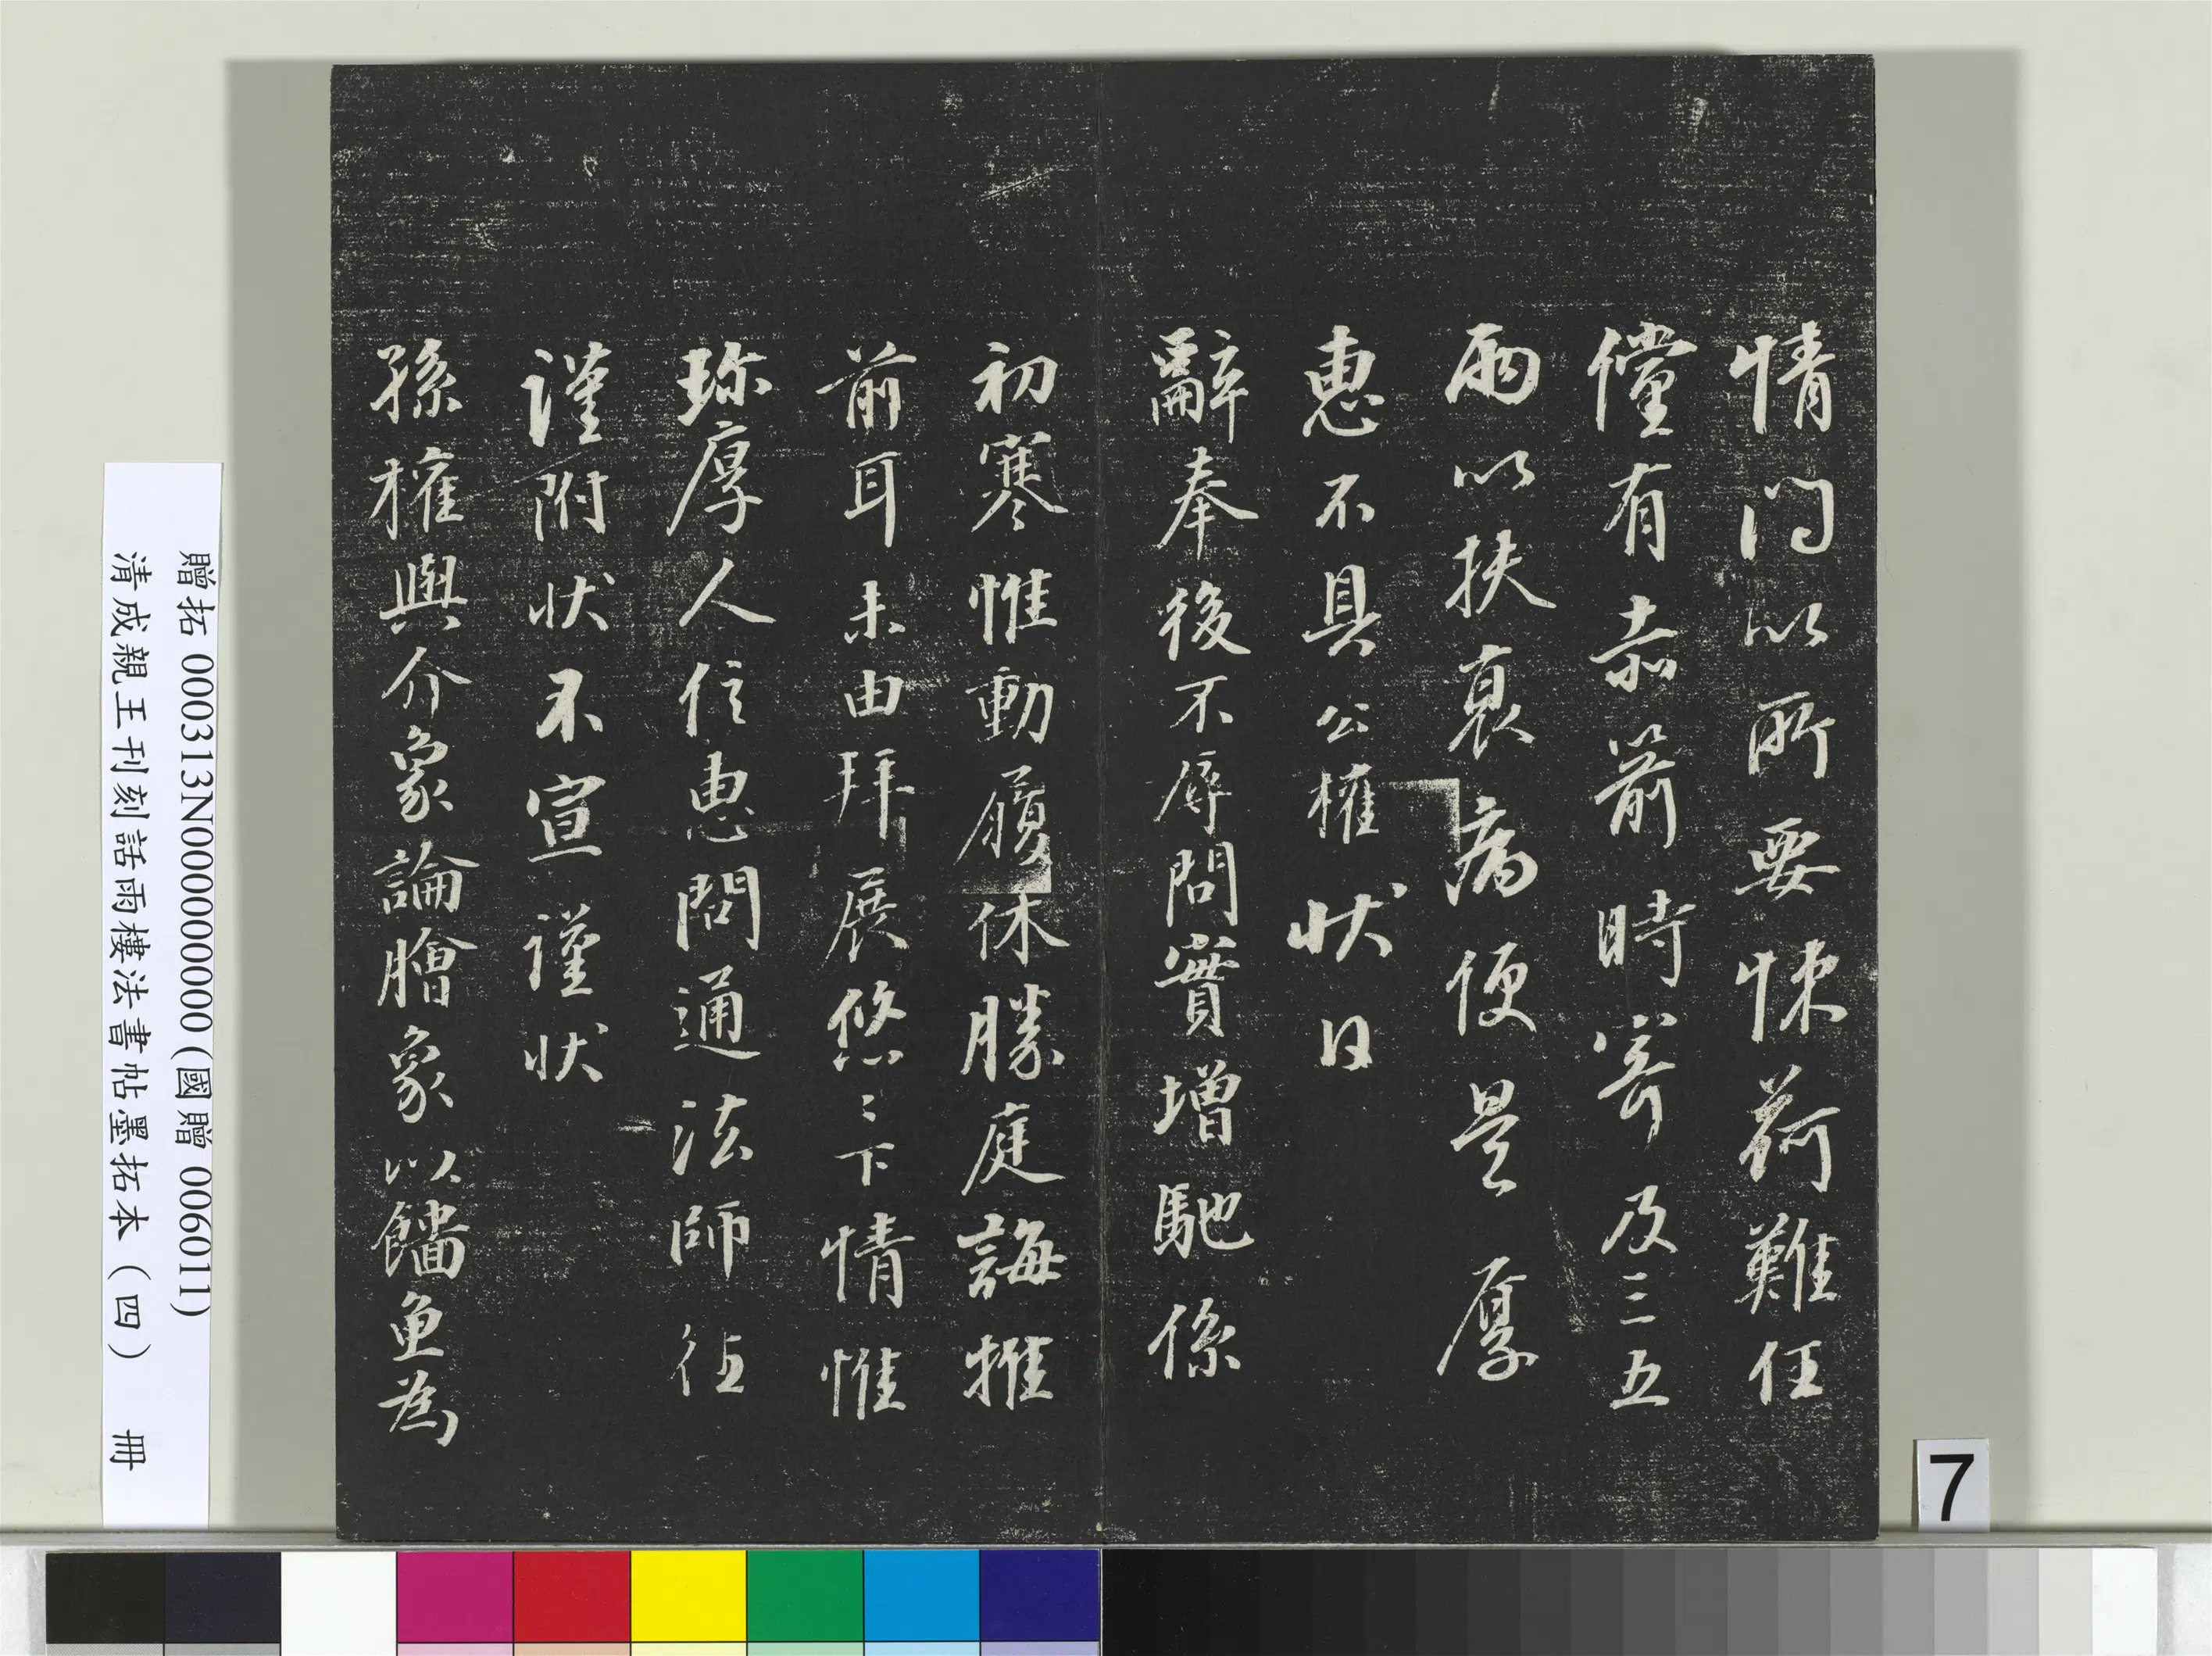 情問以所要悚荷難任
儻有赤箭時寄及三五
兩以扶衰病便是厚
惠不具公權狀日
辭奉後不辱問實增馳係
初寒惟動履休勝庭誨推
前耳未由拜展悠〻下情惟
珎厚人信惠問通法師徃
謹附狀不宣謹狀
孫權與介象論膾象以鯔魚為
贈拓 000313N000000000(國贈 006011)
清成親王刊刻詒晉樓法書帖墨拓本(四) 冊
7